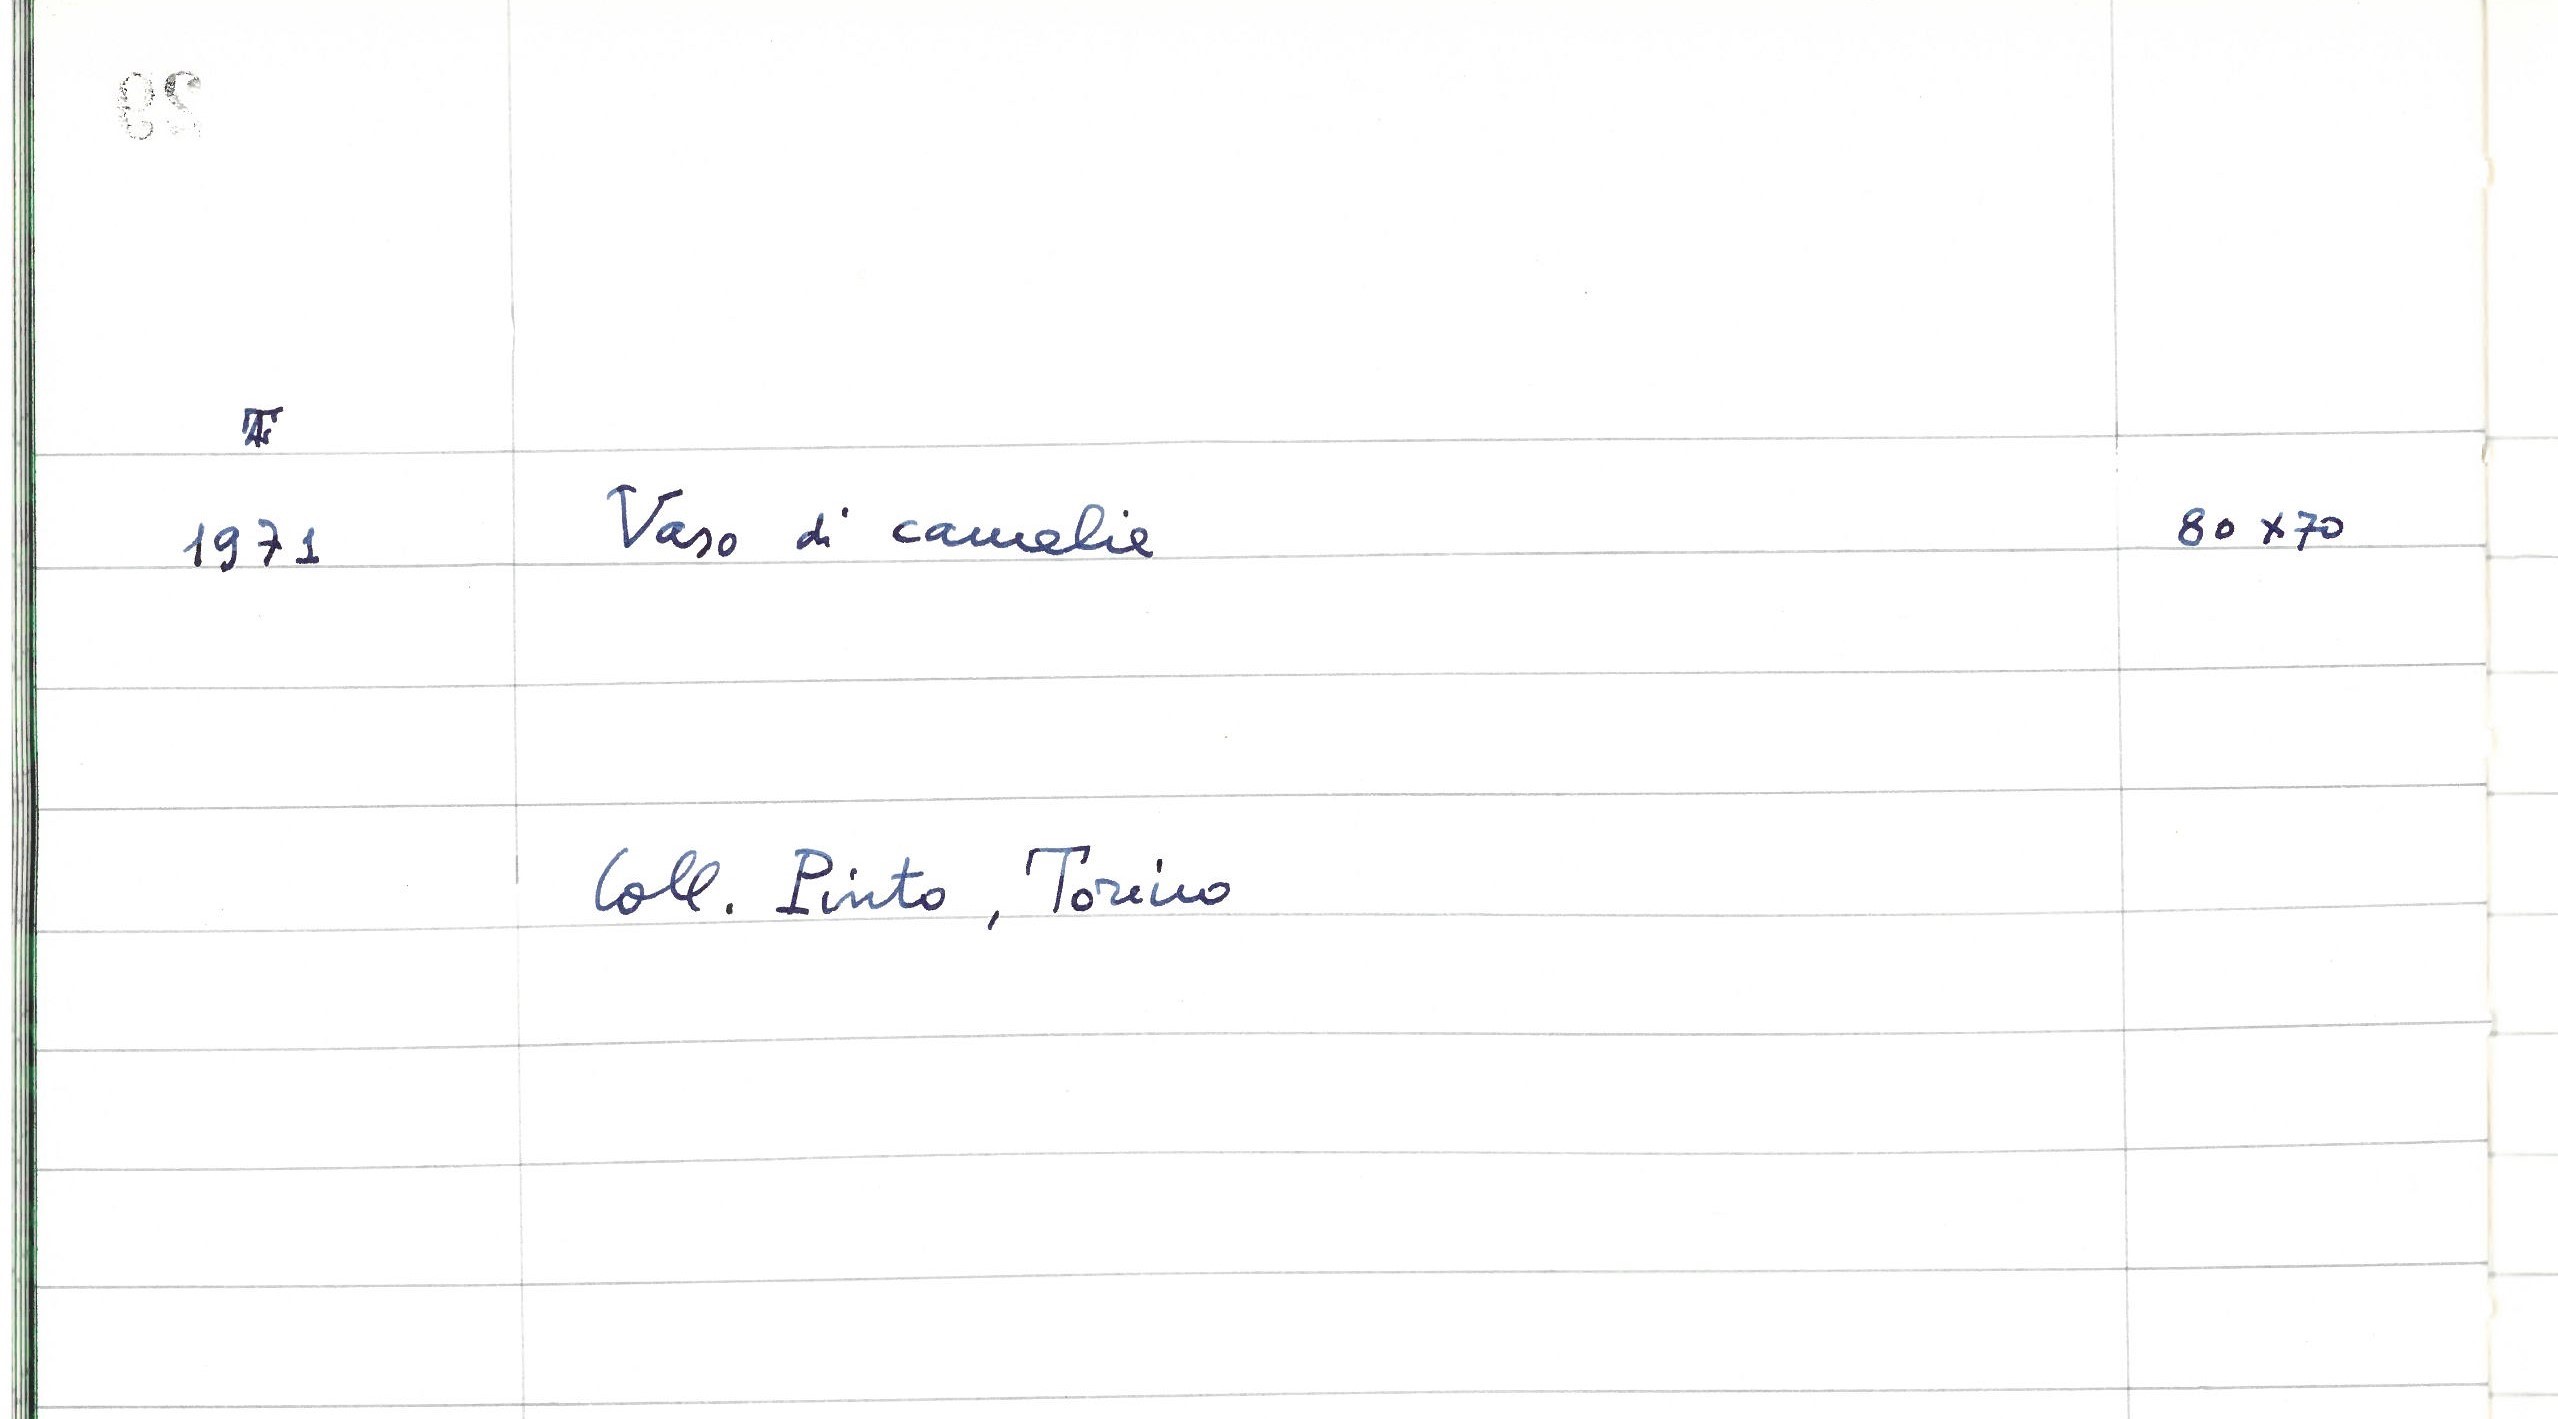 1971 Vaso di camelie 80 x 70
Coll. Pinto, Torino